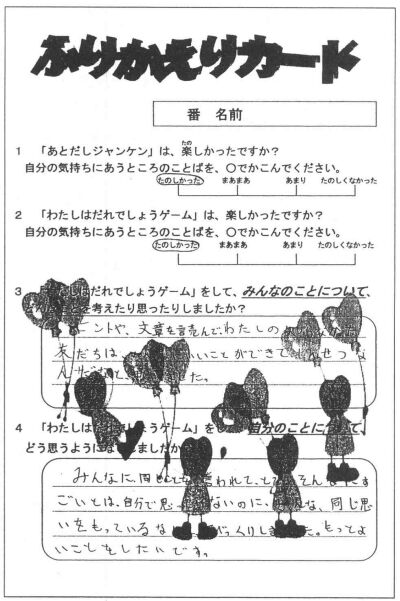 ふりかえりカード
番 名前
1 「あとだしジャンケン」は、楽しかったですか?
たの
自分の気持ちにあうところのことばを、〇でかこんでください。
たのしかった まあまあ あまり たのしくなかった
2 「わたしはだれでしょうゲーム」は、楽しかったですか?
自分の気持ちにあうところのことばを、〇でかこんでください。
たのしかった まあまあ あまり たのしくなかった
3 はだれでしょうゲーム」をして、みんなのことについて、
を考えたり思ったりしましたか?
ントや、文章を読んでわたしの
友だちは、 いことができて せつな
た。
4 「わたしはだれでしょうゲーム」をし 自分のことについて、
どう思うように しましたか
みんなに、 われて、 そん
ごいとは、自分で思 ないのに、 な、同じ思
いをもっている っくりしました。もっとよ
いことをしたいです。